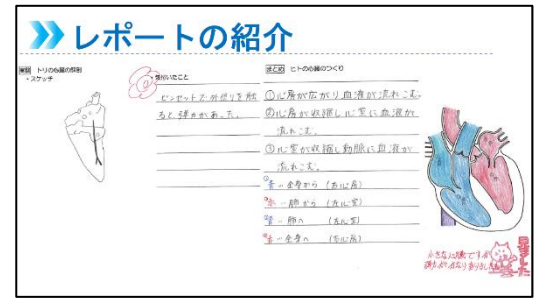 レポートの紹介
実習 トリの心臓の解剖
・スケッチ
気付いたこと
ピンセットで外側を触
ると弾力があった。
まとめ ヒトの心臓のつくり
①心房が広がり血液が流れこむ。
②心房が収縮し心室に血液が
流れこむ。
③心室が収縮し動脈に血液が
流れこむ。
青…全身から (右心房)
赤…肺から (左心室)
青…肺へ (右心室)
赤…全身へ (左心房)
小さな心臓ですが
弾力がかなりありました